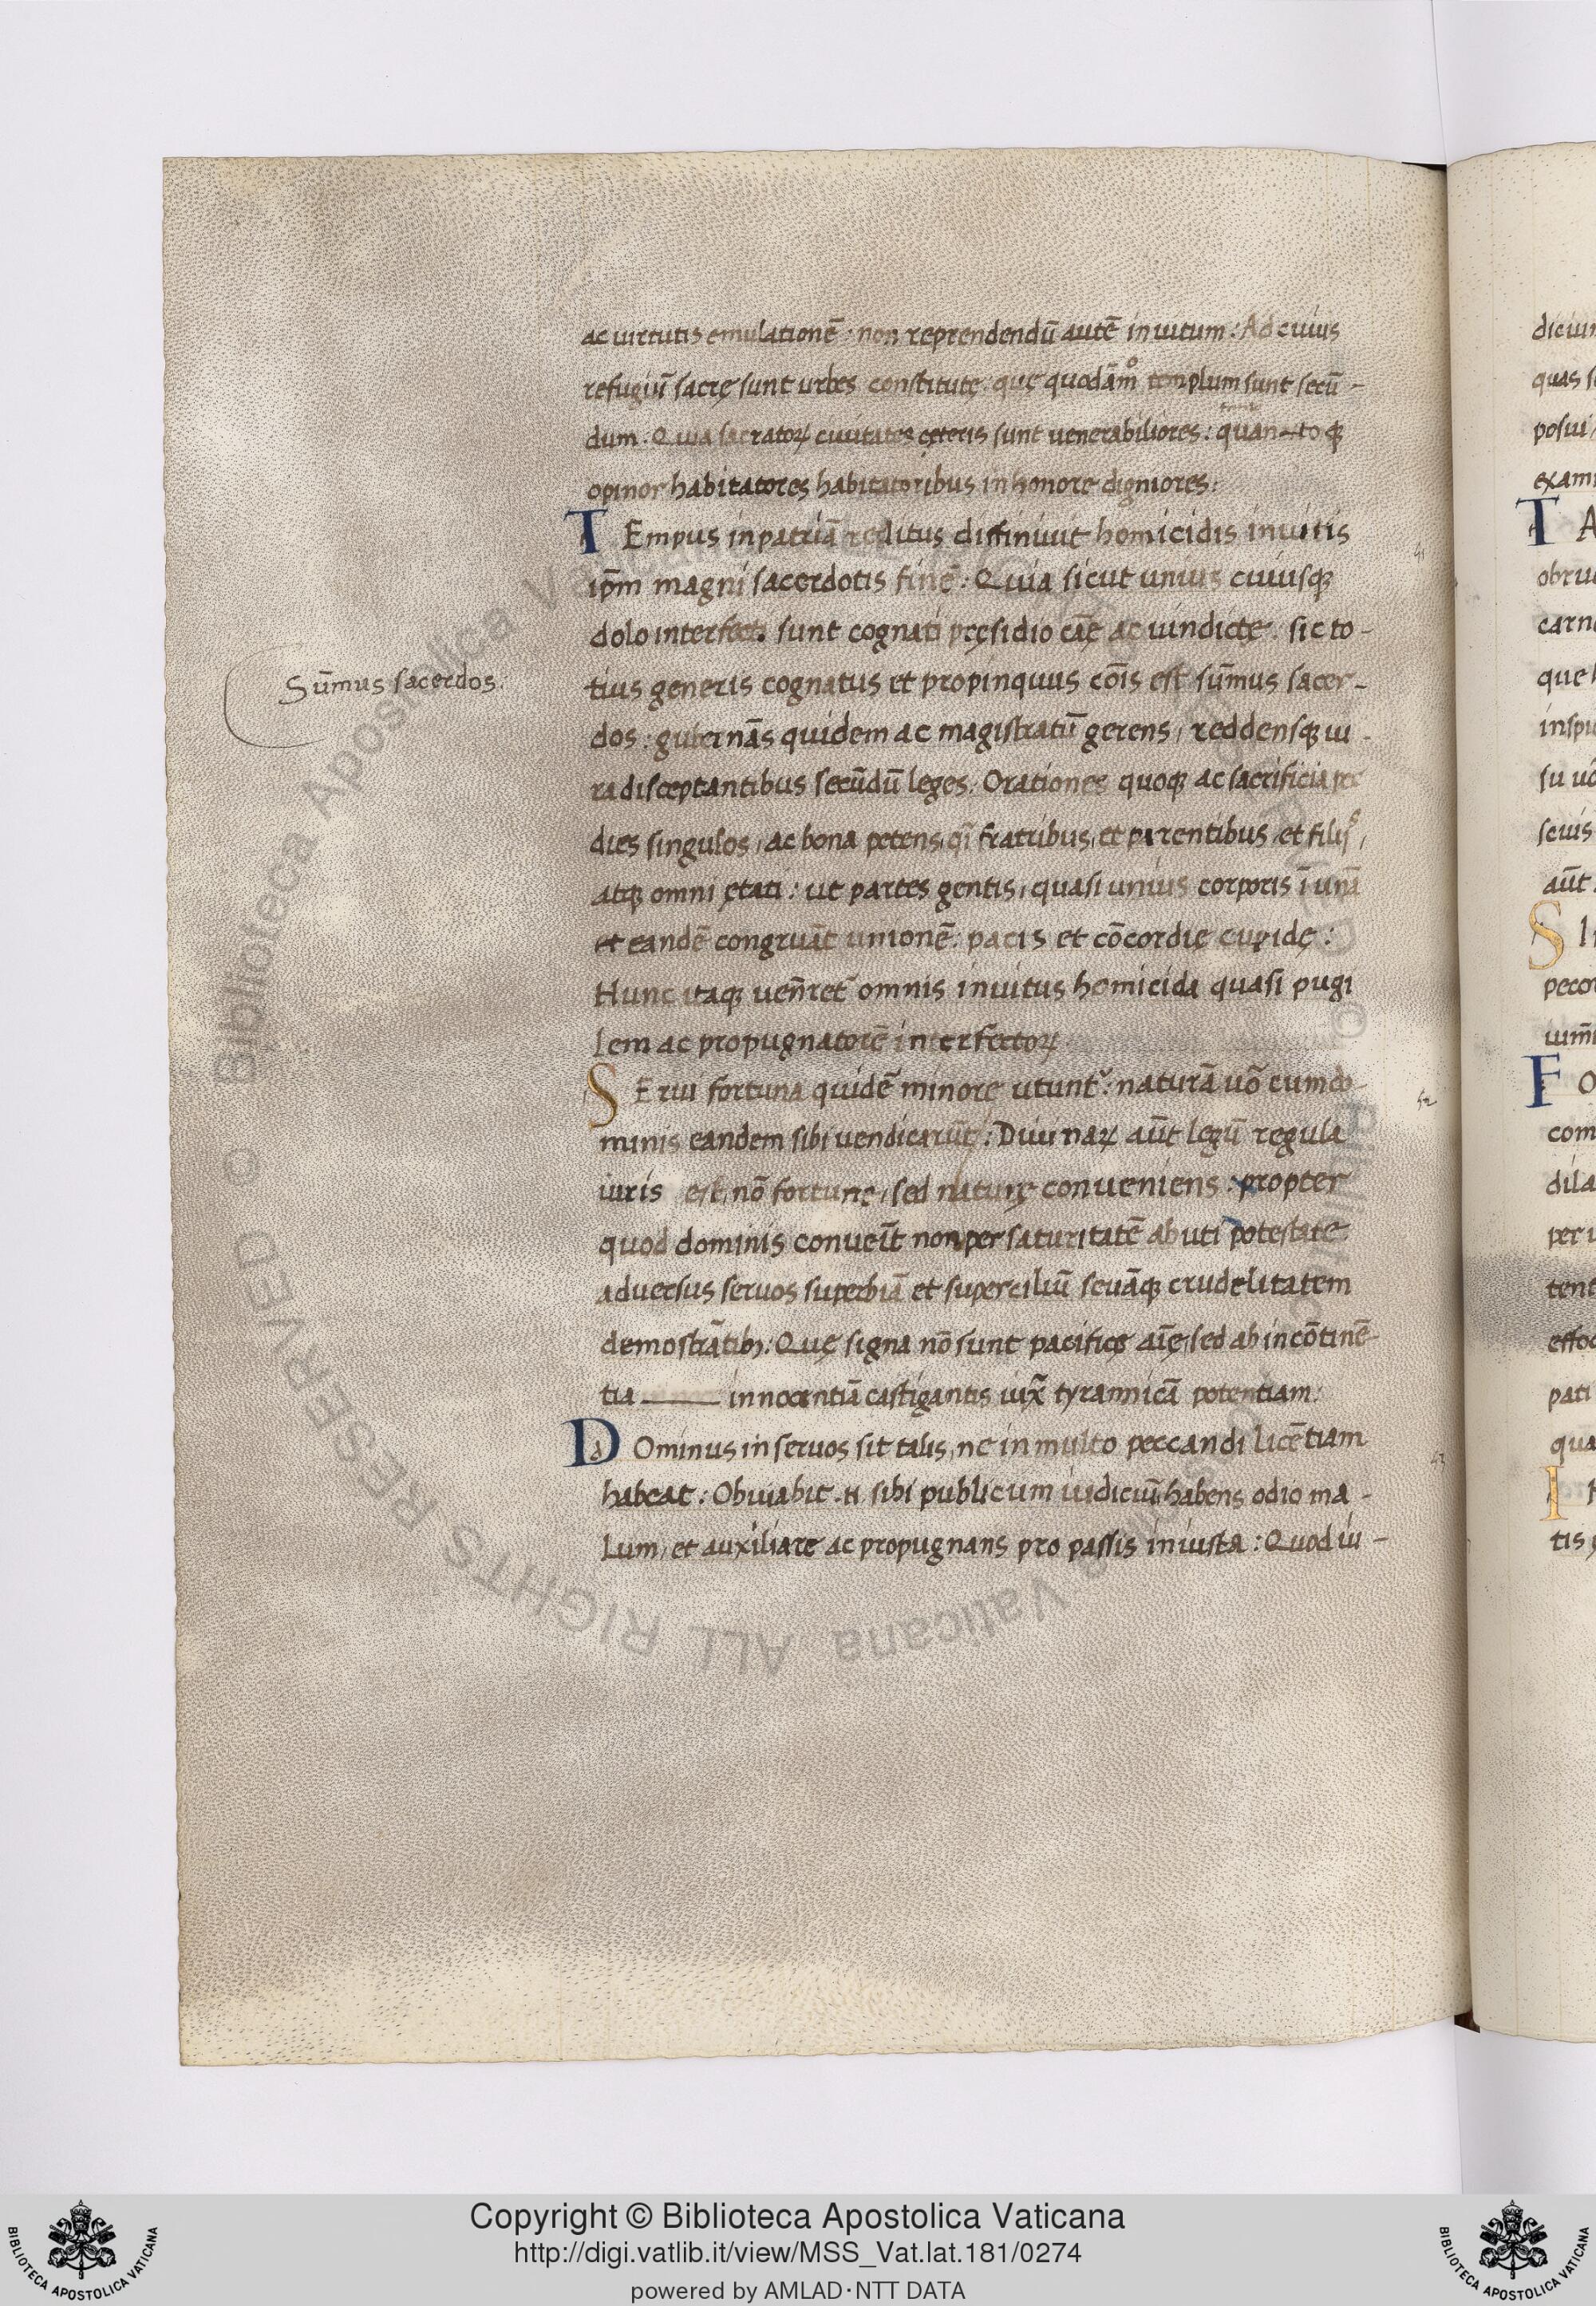 ac uirtutis emulationē: non reprendendū autē inuitum: Ad cuius
refugiū sacrę sunt urbes constitutę: quę quodām̊ templum sunt secū-
dum. Quia sacratoꝝ ciuitates cęteris sunt uenerabiliores: quanto ꝗ
opinor habitatores habitatoribus in honore digniores:
TEmpus in patriā reditus diffiniuit homicidis inuitis
ip̄m magni sacerdotis finē: Quia sicut unius cuiusqꝫ
dolo interfecti sunt cognati pręsidio cāę ac uindictę: sic to-
tius generis cognatus et propinquus cōis est sūmus sacer-
Sūmus sacerdos.
dos: gubernās quidem ac magistratū gerens, reddensqꝫ iu-
ra disceptantibus secūdū leges: Orationes quoqꝫ ac sacrificia per
dies singulos, ac bona petens, qī fratribus, et parentibus, et filijs,
atqꝫ omni ętati: ut partes gentis, quasi unius corporis ī unā
et eandē congruāt unionē: pacis et cōcordię cupidę:
Hunc itaqꝫ uen̄ret omnis inuitus homicida quasi pugi
lem ac propugnatorē interfectoꝝ
SErui fortuna quidē minore utunt᷑: naturā uō cum do-
minis eandem sibi uendicarūt: Diuinaꝝ aūt legū regula
iuris est, nō fortunę, sed naturę conueniens: propter
quod dominis conueīt non per saturitatē abuti potestate
aduersus seruos superbiā et superciliū seuāqꝫ crudelitatem
demostrātibꝫ: Quę signa nō sunt pacificę aīę, sed ab incōtinē-
tia innocentiā castigantis iux̄ tyrannicā potentiam:
DOminus in seruos sit talis, ne in multo peccandi licētiam
habeat: Obuiabit .n. sibi publicum iudiciū, habens odio ma-
lum, et auxiliare ac propugnans pro passis iniusta: Quod iu-
41
42
43
dicium
quas s
posui
exami
T A
obru
carn
que h
inspi
su uō
seuis
aūt.
S I
pecor
F O
com
dila
per
tent
effo
pati
qua
I
tis
Copyright © Biblioteca Apostolica Vaticana
http://digi.vatlib.it/view/MSS_Vat.lat.181/0274
powered by AMLAD·NTT DATA
BIBLIOTECA APOSTOLICA VATICANA
BIBLIOTECA APOSTOLICA VATICANA
© Biblioteca Apostolica Vaticana ALL RIGHTS RESERVED